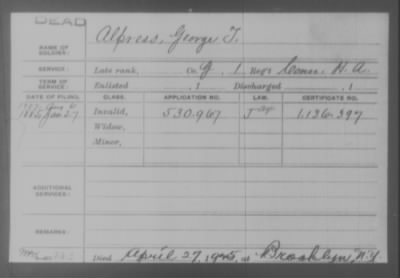 DEAD
NAME OF SOLDIER: Alpress, George T.
SERVICE: Late rank, Co. G, 1 Reg't Conn. H. A.
TERM OF SERVICE: Enlisted , 1 Discharged , 1
DATE OF FILING. CLASS. APPLICATION NO. LAW. CERTIFICATE NO.
1885 Jan 27 Invalid, 530.967 1.136.397
Widow,
Minor,
ADDITIONAL SERVICES:
REMARKS:
Died April 27, 1925, at Brooklyn, N.Y.